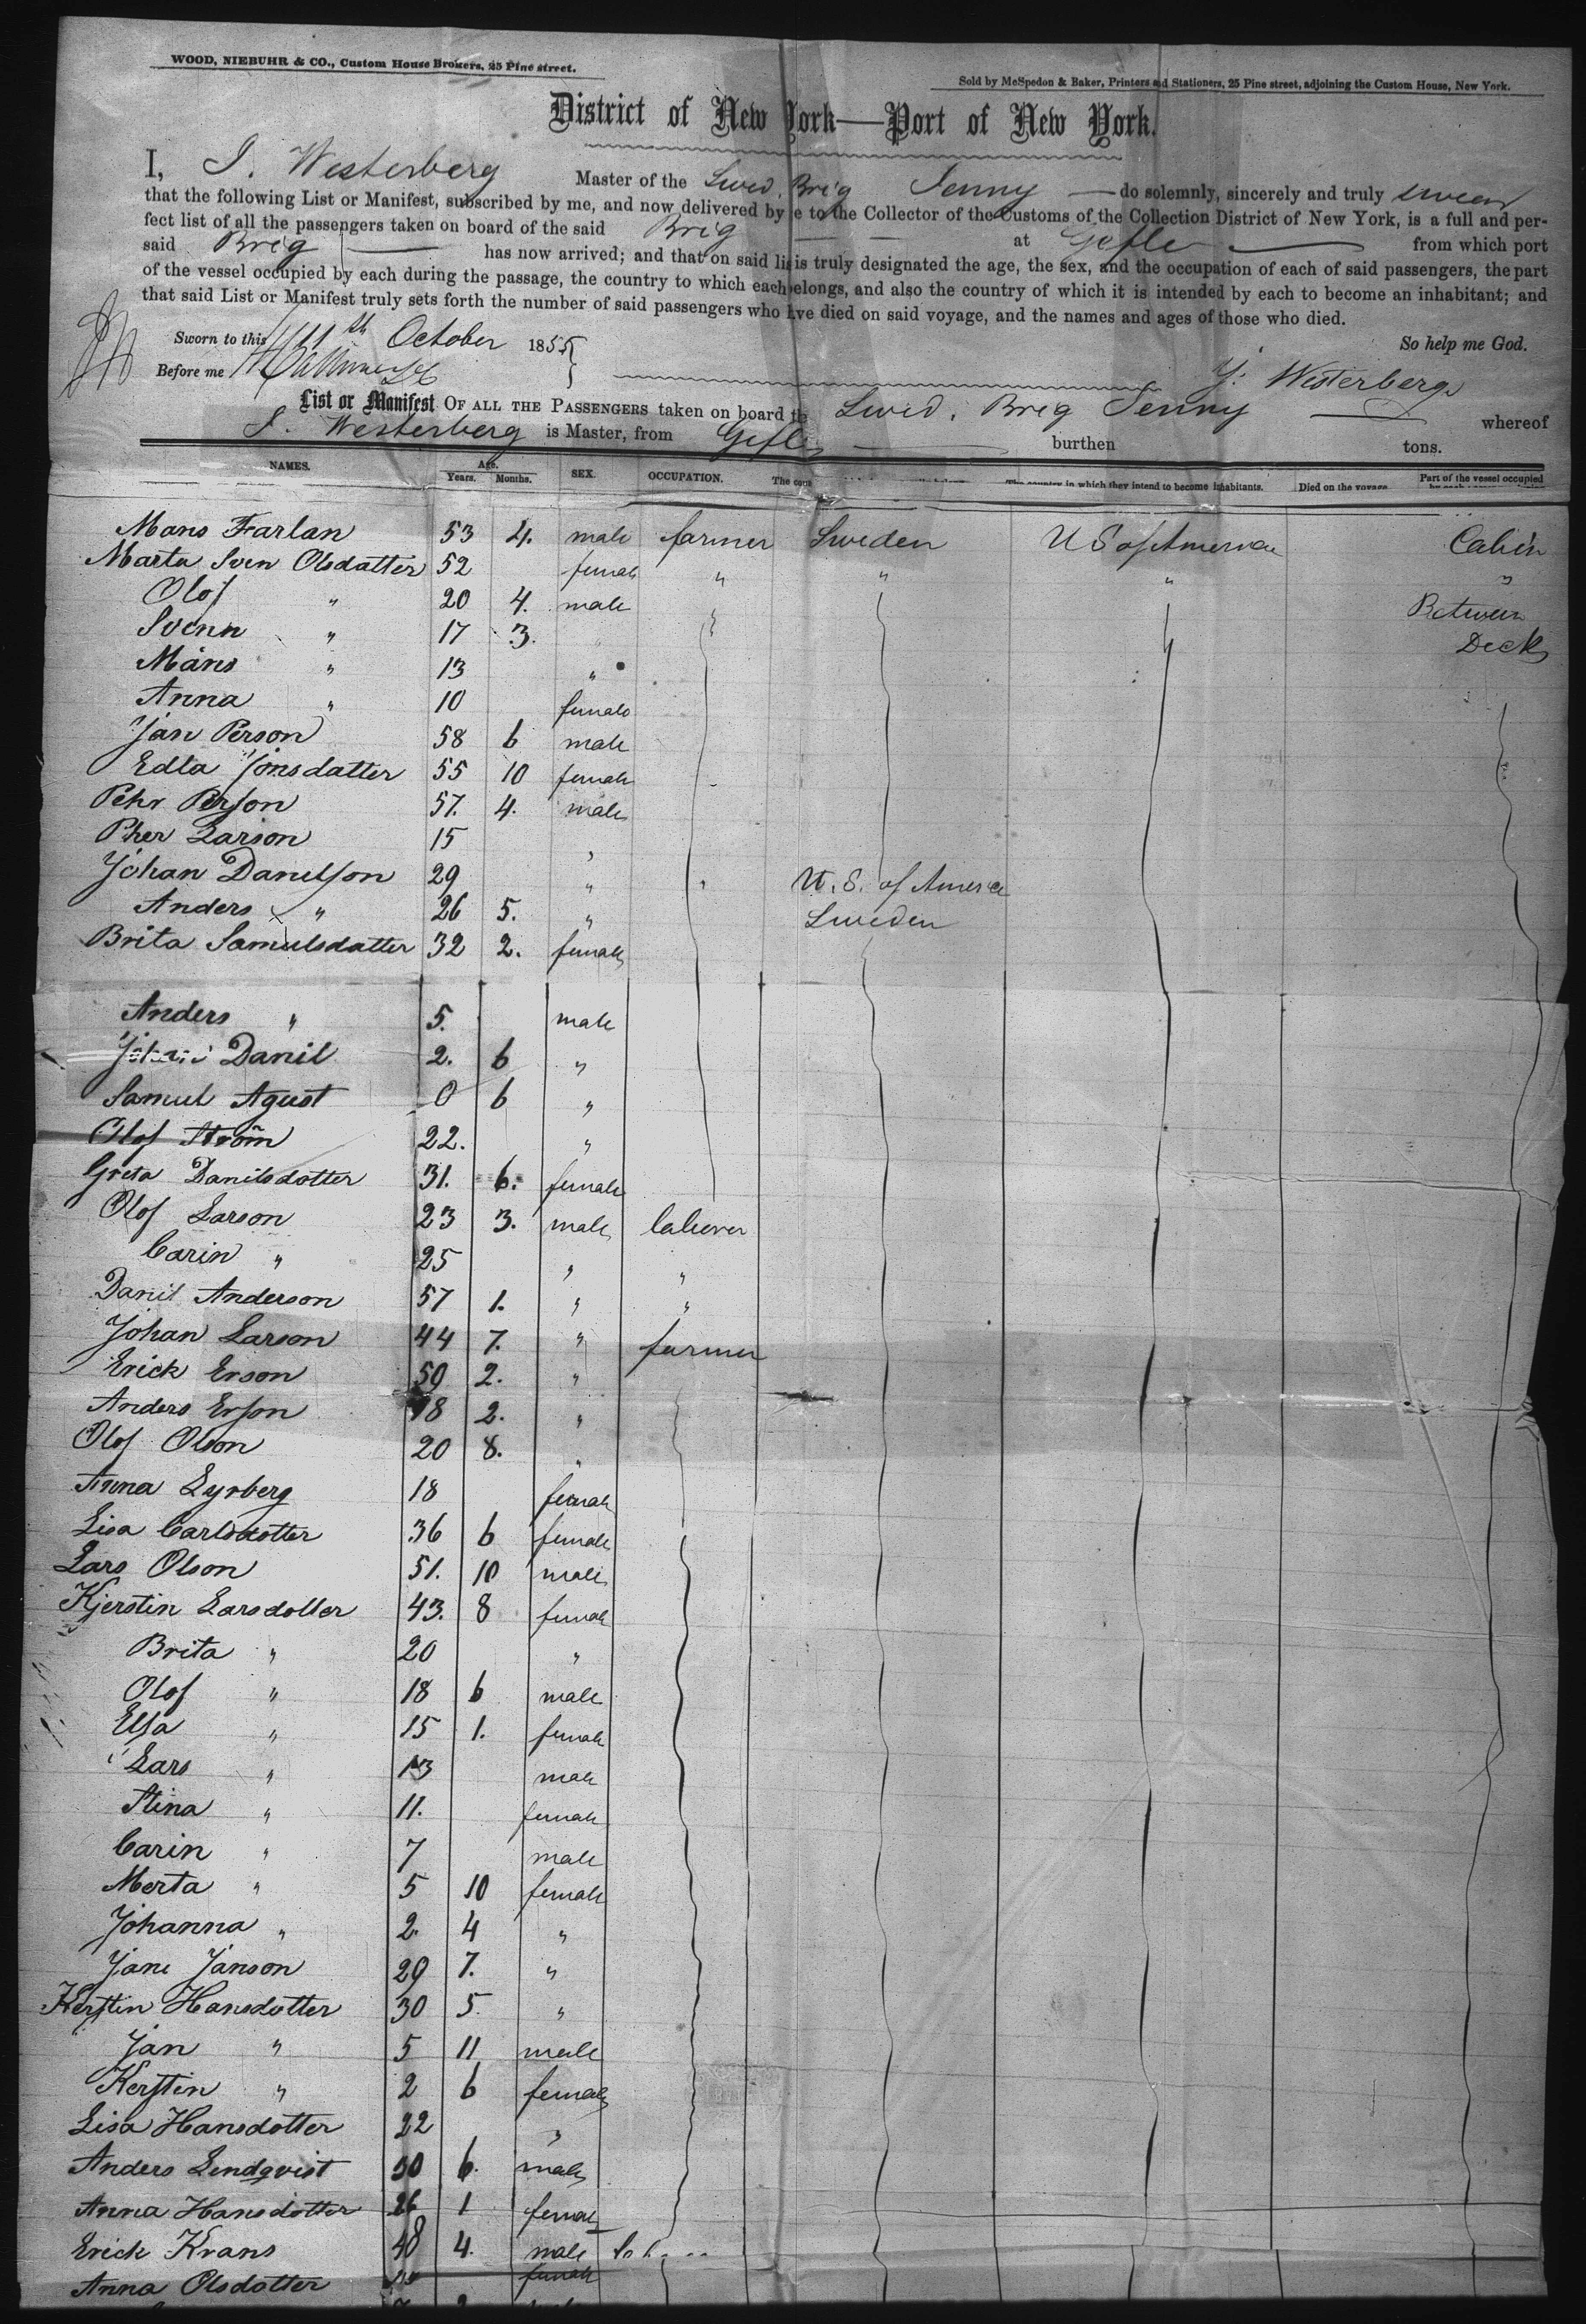 WOOD, NIEBUHR & CO., Custom House Brokers, 25 Pine street.
Sold by McSpedon & Baker, Printers and Stationers, 25 Pine street, adjoining the Custom House, New York.
District of New York—Port of New York.
I, J. Westerberg Master of the Swed. Brig Jenny — do solemnly, sincerely and truly swear
that the following List or Manifest, subscribed by me, and now delivered by e to the Collector of the Customs of the Collection District of New York, is a full and per-
fect list of all the passengers taken on board of the said Brig at Gefle from which port
said Brig has now arrived; and that on said li is truly designated the age, the sex, and the occupation of each of said passengers, the part
of the vessel occupied by each during the passage, the country to which each belongs, and also the country of which it is intended by each to become an inhabitant; and
that said List or Manifest truly sets forth the number of said passengers who ve died on said voyage, and the names and ages of those who died.
Sworn to this 11th October 1855 So help me God.
Before me J. Westerberg
List or Manifest OF ALL THE PASSENGERS taken on board the Swed. Brig Jenny whereof
J. Westerberg is Master, from Gefle burthen tons.
NAMES. Age. Years. Months. SEX. OCCUPATION. The coun The country in which they intend to become inhabitants. Died on the voyage. Part of the vessel occupied
Mans Farlan 53 4. male farmer Sweden U S of America Cabin
Marta Sven Olsdatter 52 female " " " "
Olof " 20 4. male Between
Svenn " 17 3. Deck
Måns " 13 "
Anna " 10 female
Jan Person 58 6 male
Edla Jonsdatter 55 10 female
Pehr Person 57. 4. male
Pher Larson 15 "
Johan Danelson 29 " " U. S. of America
Anders " 26 5. " Sweden
Brita Samulsdatter 32 2. female
Anders " 5. male
Johan Danil 2. 6 "
Samul Agust 0 6 "
Olof Ström 22. "
Greta Danilsdotter 31. 6. female
Olof Larson 23 3. male laborer
Carin " 25 " "
Danil Anderson 57 1. " "
Johan Larson 44 7. " farmer
Erick Erson 50 2. "
Anders Erson 18 2. "
Olof Olson 20 8. "
Anna Lyrberg 18 female
Lisa Carlsdotter 36 6 female
Lars Olson 51. 10 male
Kjerstin Larsdotter 43. 8 female
Brita " 20 "
Olof " 18 6 male
Elsa " 15 1. female
Lars " 13 male
Stina " 11. female
Carin " 7 male
Merta " 5 10 female
Johanna " 2. 4 "
Jane Janson 29 7. "
Kerstin Hansdotter 30 5. "
Jan " 5 11 male
Kerstin " 2 6 female
Lisa Hansdotter 22 "
Anders Lendqvist 50 6. male
Anna Hansdotter 26 1 female
Erick Krans 48 4. male
Anna Olsdotter female